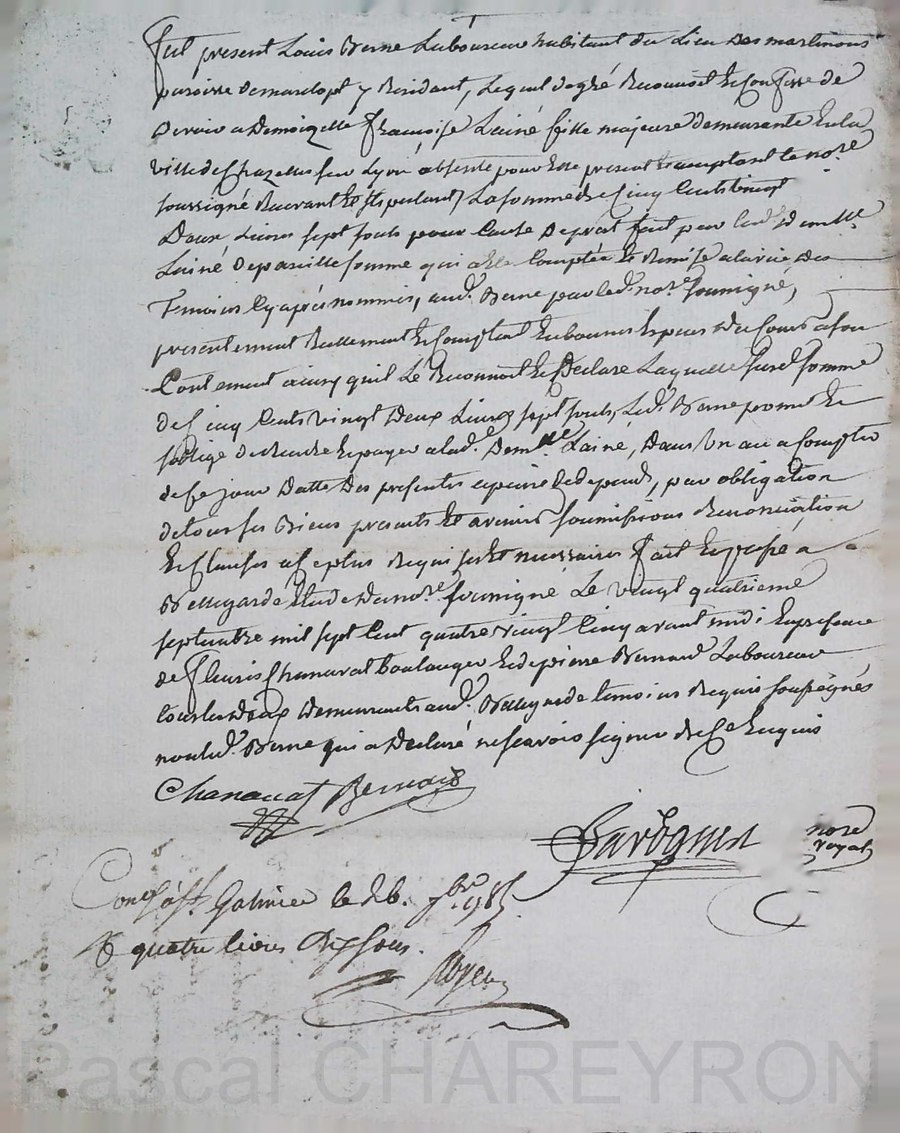 fut present Louis Berne Laboureur habitant du Lieu des martinons
paroisse de marclopt y Residant, Lequel degré Reconnoit Et Confesse de
Devoir a Demoizelle francoise Lainé fille majeure demeurante En la
ville de Chazelles sur Lyon, absente pour Elle present Et acceptant le no.re
soussigné Recevant Et stipulant, La somme de Cinq Cents vingt
Deux Livres sept sols pour Cause de pret fait par lad. Dem.lle
Lainé de pareille somme qui a Eté Comptée Et Remise a la vüe des
Temoins Cy après nommés, aud. Berne par led. no.re soussigné,
presentement Reellement Et Comptant En bonnes Especes de Cours a son
Contentement ainsy qu'il Le Reconnoit Et Declare Laquelle susd. somme
de Cinq Cents vingt Deux Livres sept sols, Led. Berne promet Et
s'oblige de Rendre Et payer a lad. Dem.lle Lainé, Dans un an a Compter
de Ce jour Datte des presentes a peine de depends, par obligation
de tous ses Biens presents Et avenirs soumissions Renonciation
Et Clauses a Ce plus Requises Et necessaires fait Et passé a
Bellegarde Etude du no.re soussigné Le vingt quatrieme
septembre mil sept Cent quatre vingt Cinq avant midi En presence
de fleuris Chanavat boulanger Et de pierre Bernard Laboureur
tous les deux Demeurants aud. Bellegarde temoins Requis soussignés
non led. Berne qui a Declaré ne scavoir signer de Ce Enquis
Chanavat Bernard
no.re
royal
Con.lé à S.t Galmier le 26. 7.bre 1785.
R quatre livres dix sous.
Pascal CHAREYRON